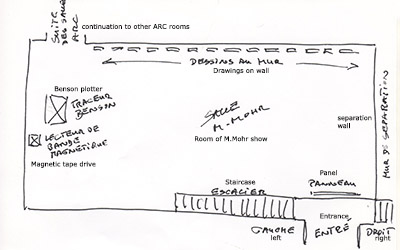 SUITE
DES SALLES
ARC
continuation to other ARC rooms
DESSINS AU MUR
Drawings on wall
Benson plotter
TRACEUR
BENSON
LECTEUR DE
BANDE
MAGNETIQUE
Magnetic tape drive
SALLE
M. MOHR
Room of M.Mohr show
separation
wall
MUR DE SEPARATION
Staircase
ESCALIER
Panel
PANNEAU
GAUCHE
left
Entrance
ENTRÉ
DROIT
right